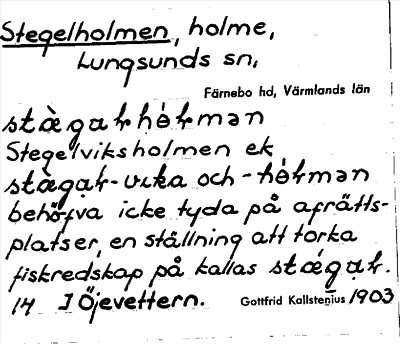 Stegelholmen, holme,
Lungsunds sn,
Färnebo hd, Värmlands län
stægaɫhòɫmən
Stegelviksholmen ek
stægaɫ-vika och -hòɫmən
behöfva icke tyda på afrätts-
platser, en ställning att torka
fiskredskap på kallas stǽgaɫ.
14 I Öjevettern. Gottfrid Kallstenius 1903